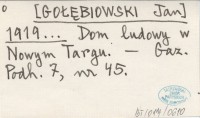 o
[GOŁĘBIOWSKI Jan]
1919... Dom ludowy w
Nowym Targu. — Gaz.
Podh. 7, nr 45.